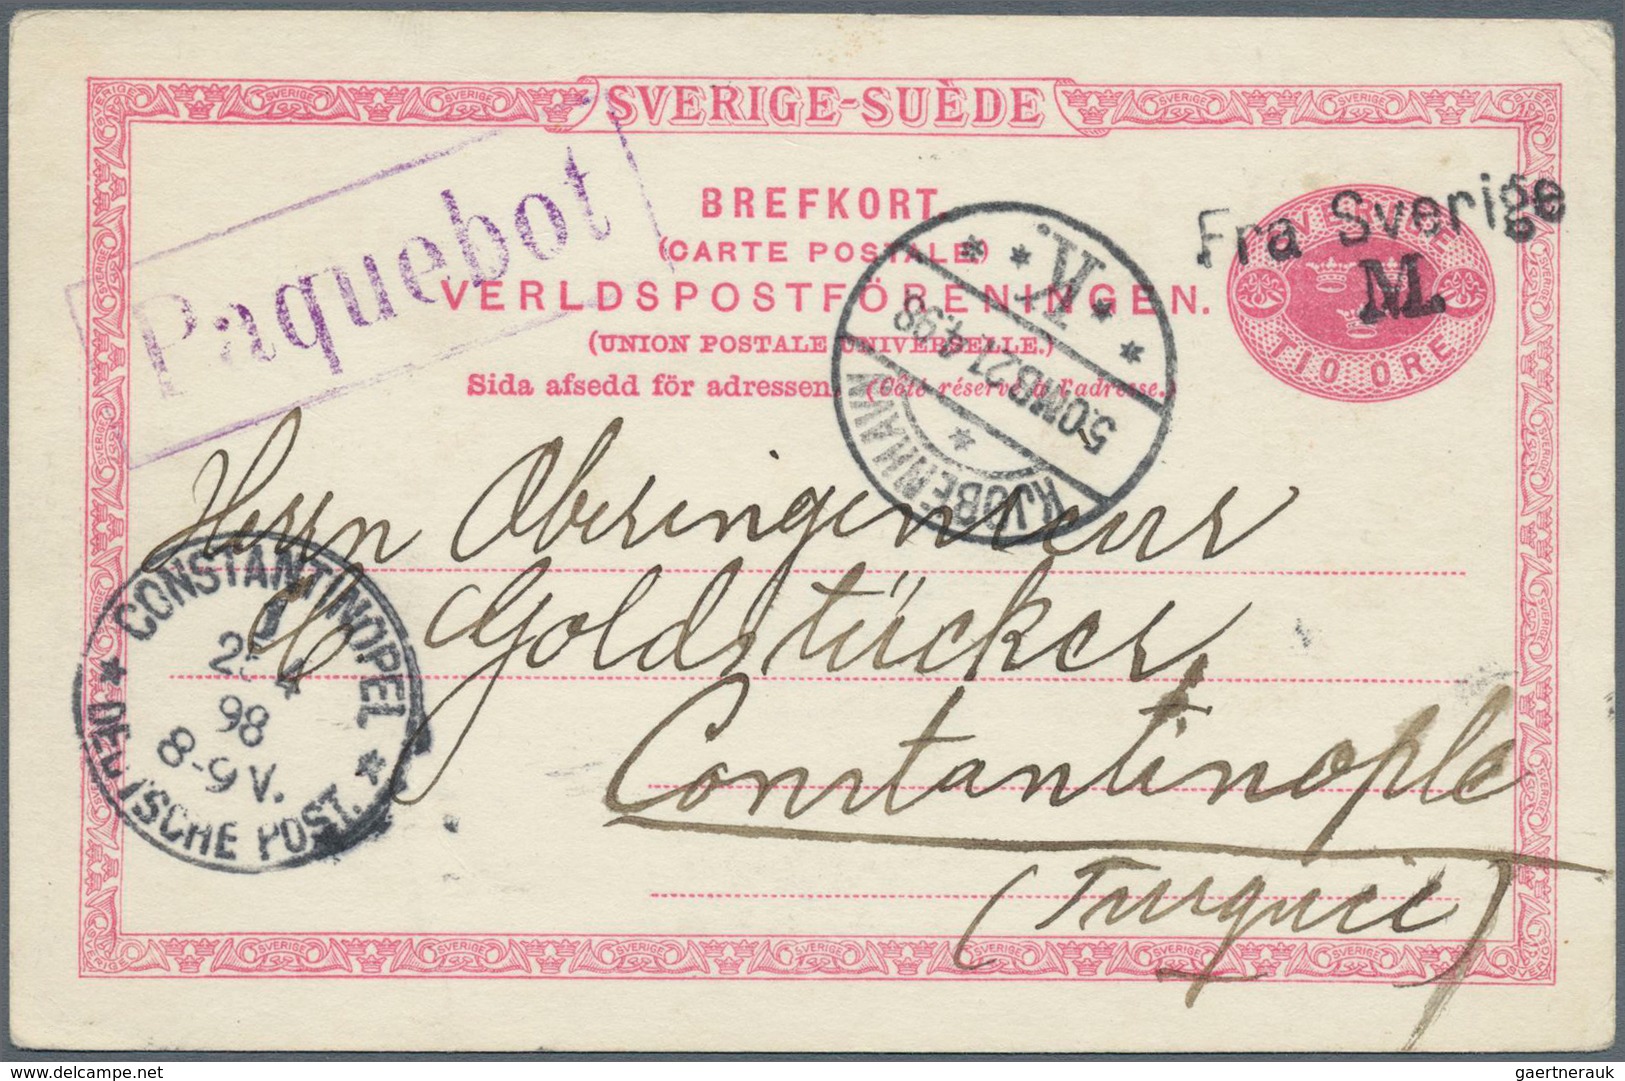 SVERIGE-SUÈDE
BREFKORT.
(CARTE POSTALE)
VERLDSPOSTFÖRENINGEN.
(UNION POSTALE UNIVERSELLE.)
Sida afsedd för adressen. (Côté réservé à l'adresse.)
Paquebot
Fra Sverige
M.
SVERIGE
TIO ÖRE
KJØBENHAVN
5.OMB.21.4.98
K.
Herrn Oberingenieur
Goldstücker
Constantinople
(Turquie)
CONSTANTINOPEL
4
98
8-9 V.
DEUTSCHE POST.
delcampe.net
gaertnerauk